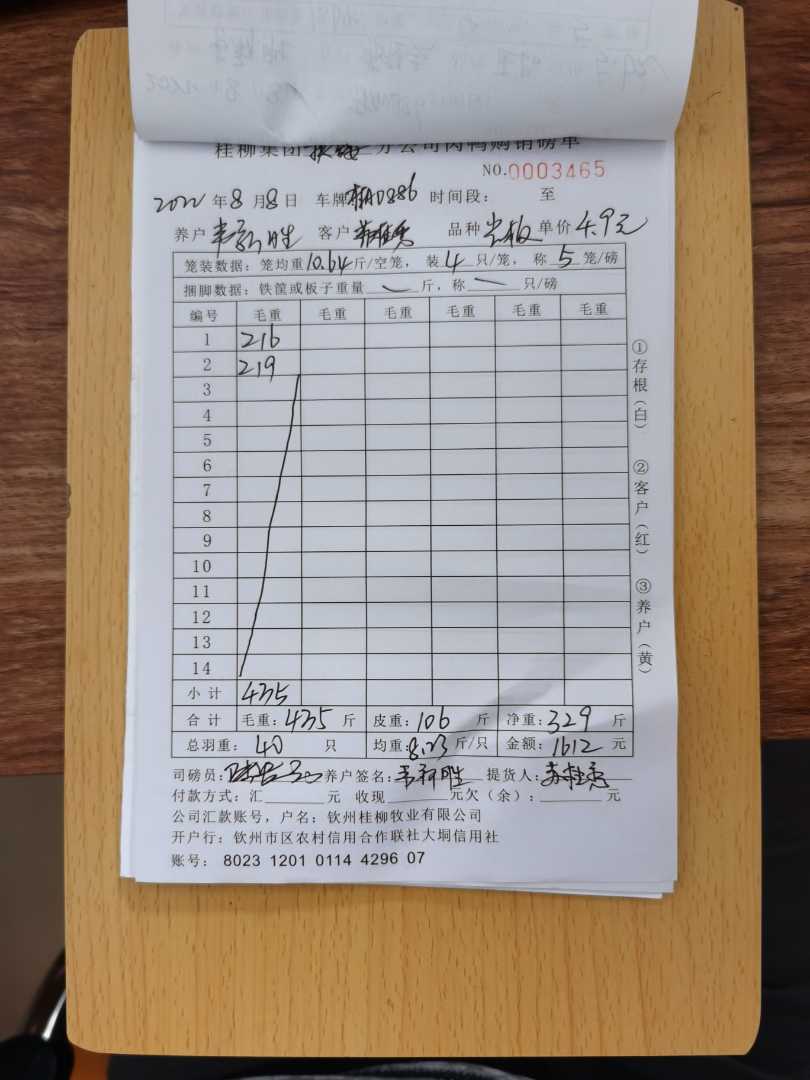 桂柳集团 分公司肉鸭购销磅单
NO.0003465
2022年8月8日 车牌 桂AD886 时间段: 至
养户 韦新胜 客户 苏桂秀 品种 单价 4.9元
笼装数据: 笼均重10.64斤/空笼, 装4只/笼, 称5笼/磅
捆脚数据: 铁筐或板子重量 斤, 称 只/磅
编号 毛重 毛重 毛重 毛重 毛重 毛重
1 216
2 219
3
4
5
6
7
8
9
10
11
12
13
14
小计 435
合计 毛重:435斤 皮重:106斤 净重:329斤
总羽重: 40 只 均重:8.23斤/只 金额:1612元
司磅员: 养户签名: 韦新胜 提货人: 苏桂秀
付款方式: 汇 元 收现 元欠(余): 元
公司汇款账号, 户名: 钦州桂柳牧业有限公司
开户行: 钦州市区农村信用合作联社大垌信用社
账号: 8023 1201 0114 4296 07
①存根(白) ②客户(红) ③养户(黄)